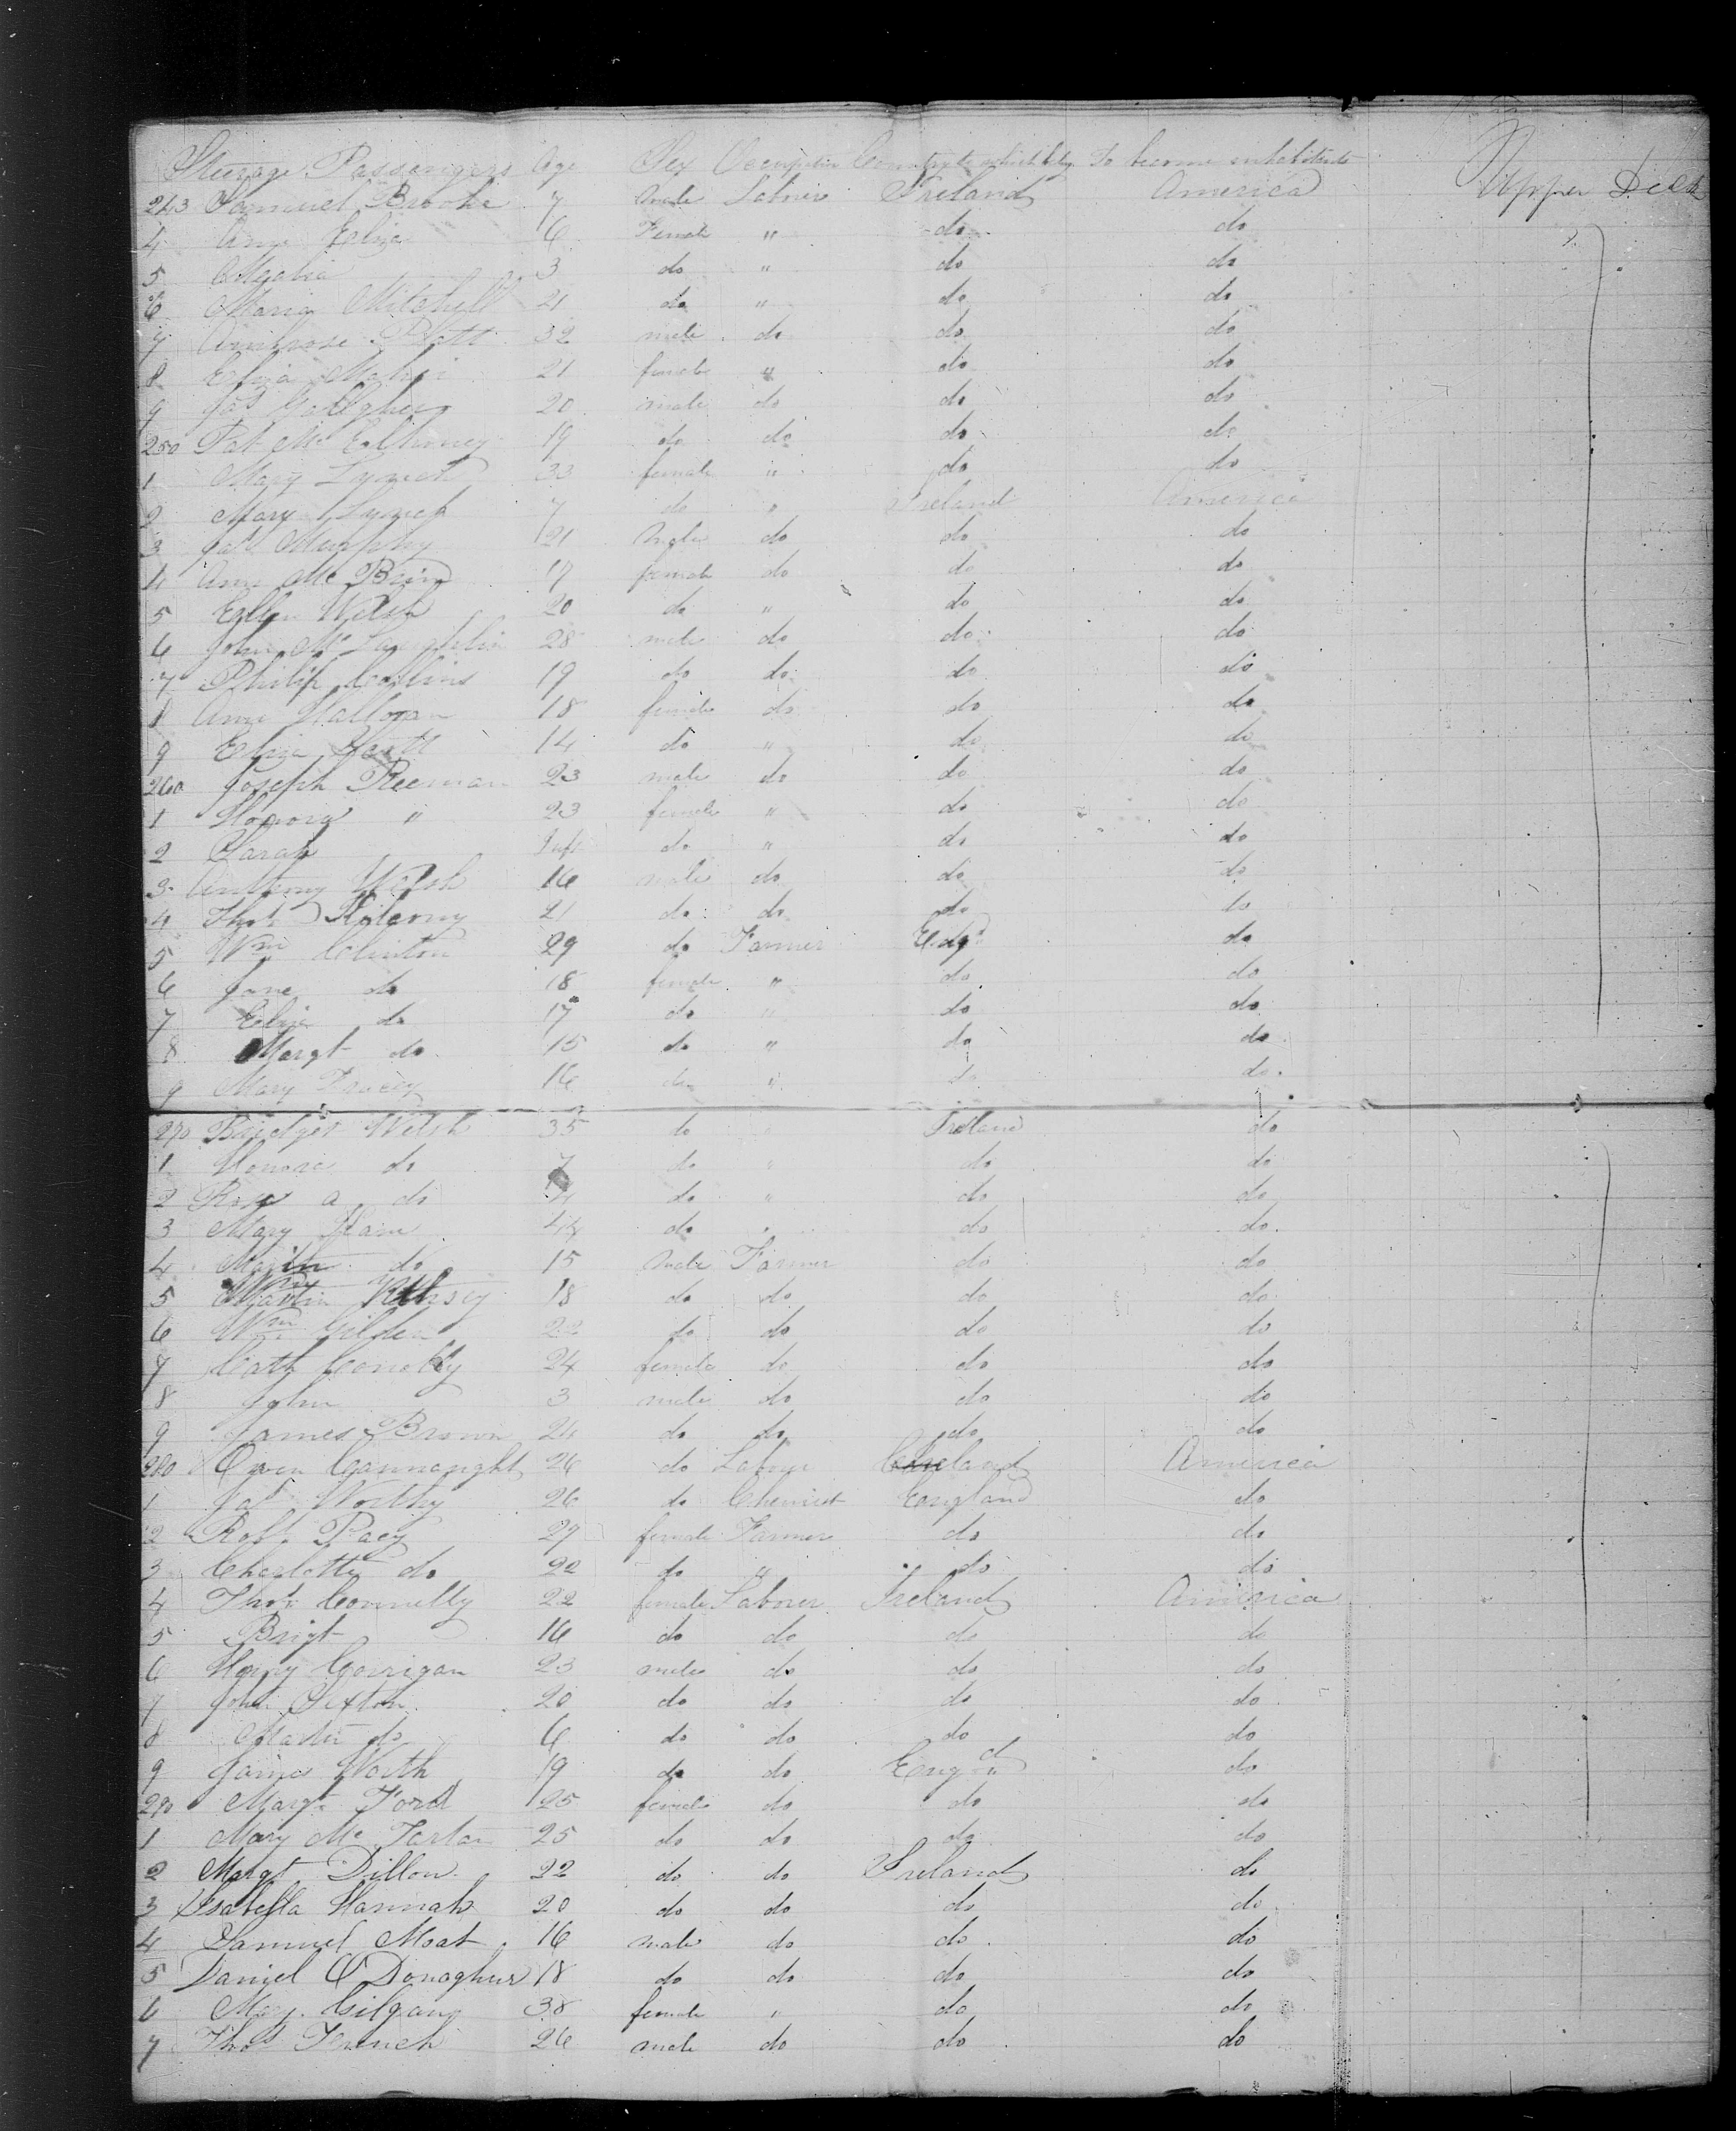 Steerage Passengers Age Sex Occupation Country to which they To become inhabitants
Upper Deck
243 Samuel Brooke 7 male Laborer Ireland America
4 Ann Eliza 6 Female " do do
5 3 do " do do
6 Maria Mitchell 21 do " do do
7 Ambrose Platt 32 male do do do
8 Eliza 21 female " do do
9 Jas Gallagher 20 male do do do
250 Pat Mc 19 do do do do
1 Mary Lynch 33 female " do do
2 Mary Lynch 7 do " Ireland America
3 Jas Murphy 21 Male do do do
4 Ann Mc 19 female do do do
5 Ellen Welsh 20 do " do do
6 John McLaughlin 28 male do do do
7 Philip Collins 19 do do do do
8 Ann Halloran 18 female do do do
9 Eliza Scott 14 do " do do
260 Joseph Reeman 23 male do do do
1 Honora " 23 female " do do
2 Sarah Inft do " do do
3 Anthony Welsh 16 male do do do
4 Thos 21 do do do do
5 Wm Clinton 29 do Farmer Engd do
6 Jane do 18 female " do do
7 Eliza do 17 do " do do
8 Margt do 15 do " do do
9 Mary Tracey 16 do " do do
270 Bridget Welsh 35 do " Ireland do
1 Honora do 7 do " do do
2 Rose a do do " do do
3 Mary Ham do " do do
4 do 15 Male Farmer do do
5 Martin 18 do do do do
6 Wm Gilden 22 do do do do
7 Cath Conolly 24 female do do do
8 John 3 male do do do
9 James Brown 24 do do do do
280 Owen Connaught 26 do Labour Ireland America
1 Jas Worthy 26 do Chemist England do
2 Robt Pacy 29 female Farmer do do
3 Charlotte do 22 do " do do
4 Thos Connelly 22 female Laborer Ireland America
5 Brigt 16 do do do do
6 Henry Corrigan 23 male do do do
7 John Sexton 20 do do do do
8 Martin do 6 do do do do
9 James North 19 do do Engd do
290 Margt Ford 25 female do do do
1 Mary Mc Tartan 25 do do do do
2 Margt Dillon 22 do do Ireland do
3 Isabella Hannah 20 do do do do
4 Samuel Moat 16 male do do do
5 Daniel O'Donaghue 18 do do do do
6 Mary Gilgan 38 female " do do
7 Thos French 26 male do do do